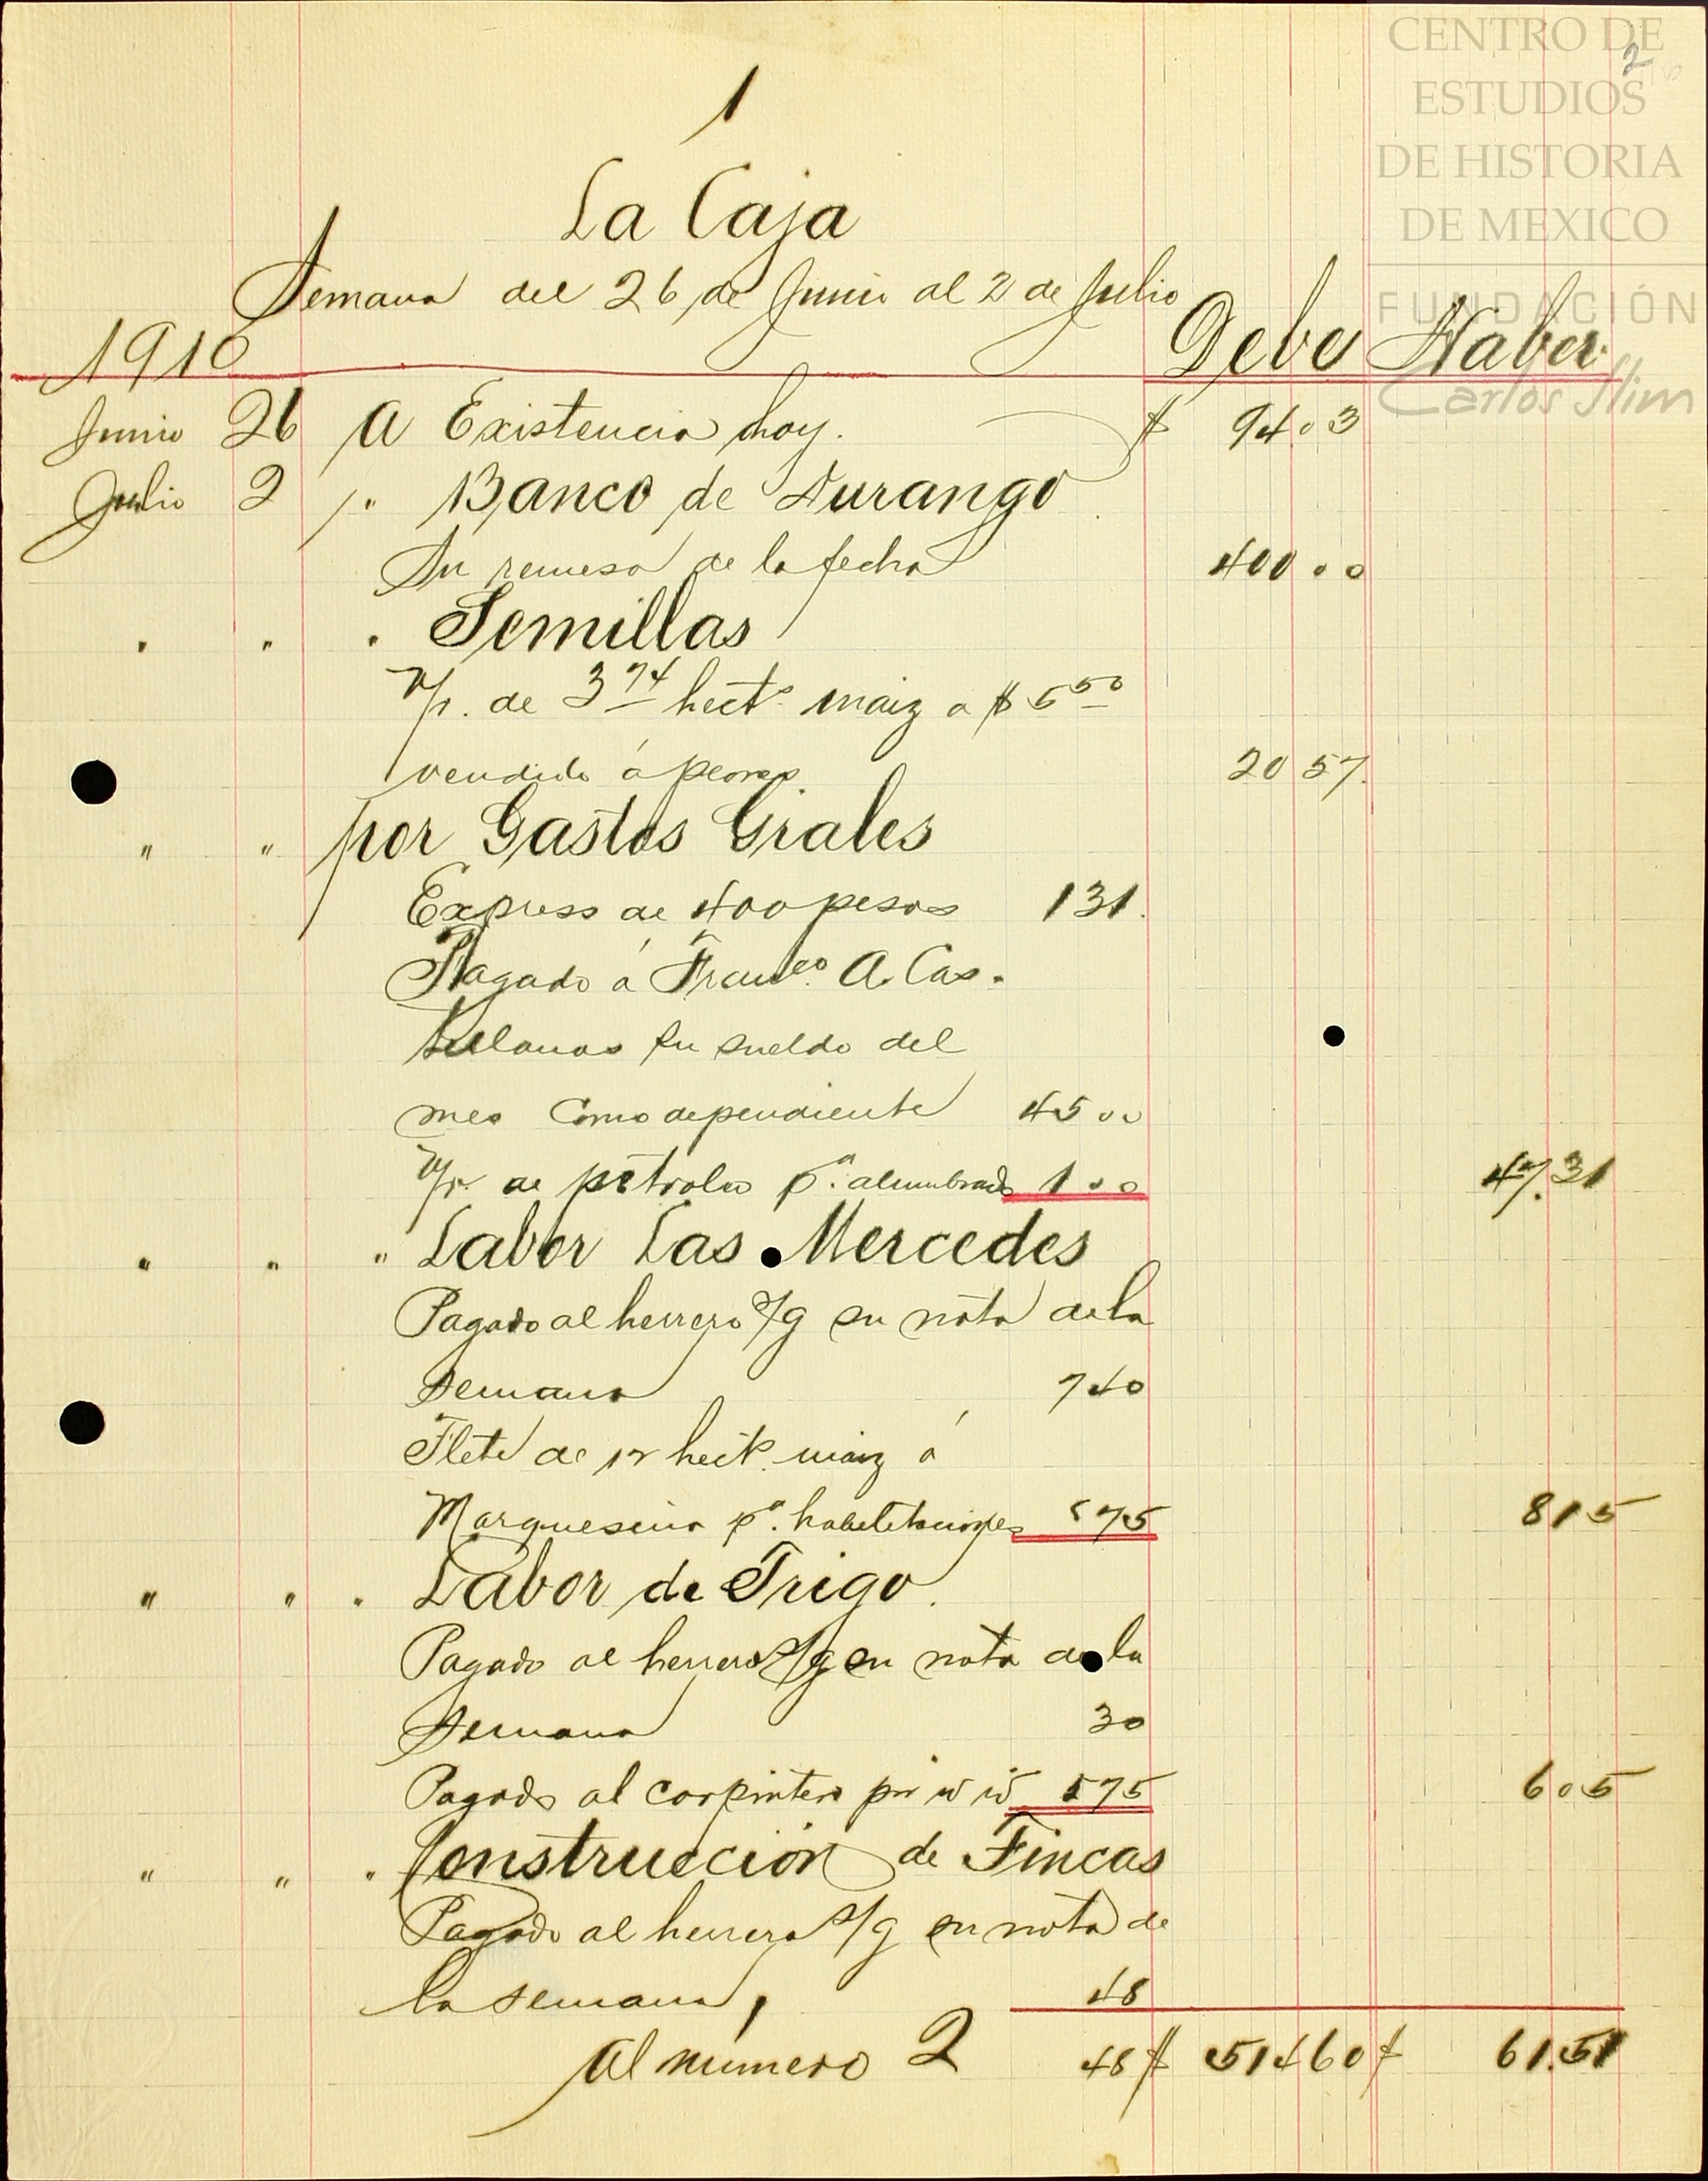 CENTRO DE
ESTUDIOS
DE HISTORIA
DE MEXICO
FUNDACIÓN
Carlos Slim
2
1
La Caja
Semana del 26 de Junio al 2 de Julio
1910 Debe Haber
Junio 26 A Existencia hoy. $ 94.03
Julio 2 " Banco de Durango
Su remesa de la fecha 400.00
" " " Semillas
V/r. de 3 74 hects. maiz a $ 5 50
vendido á peones 20 57.
" " por Gastos Grales
Express de 400 pesos 1 31.
Pagado á Franco. A. Cas-
tellanos su sueldo del
mes como dependiente 45 00
V/r. de petroleo pa. alumbrado 1 00 47.31
" " " Labor Las Mercedes
Pagado al herrero s/g su nota de la
semana 7 40
Flete de 12 hects. maiz á
Marqueseña pa. habilitaciones 75 8 15
" " " Labor de Trigo.
Pagado al herrero s/g su nota de la
semana 30
Pagado al carpintero por 5 75 6 05
" " " Construcción de Fincas
Pagado al herrero s/g su nota de
la semana, 48
Al número 2 48 $ 514 60 $ 61.51